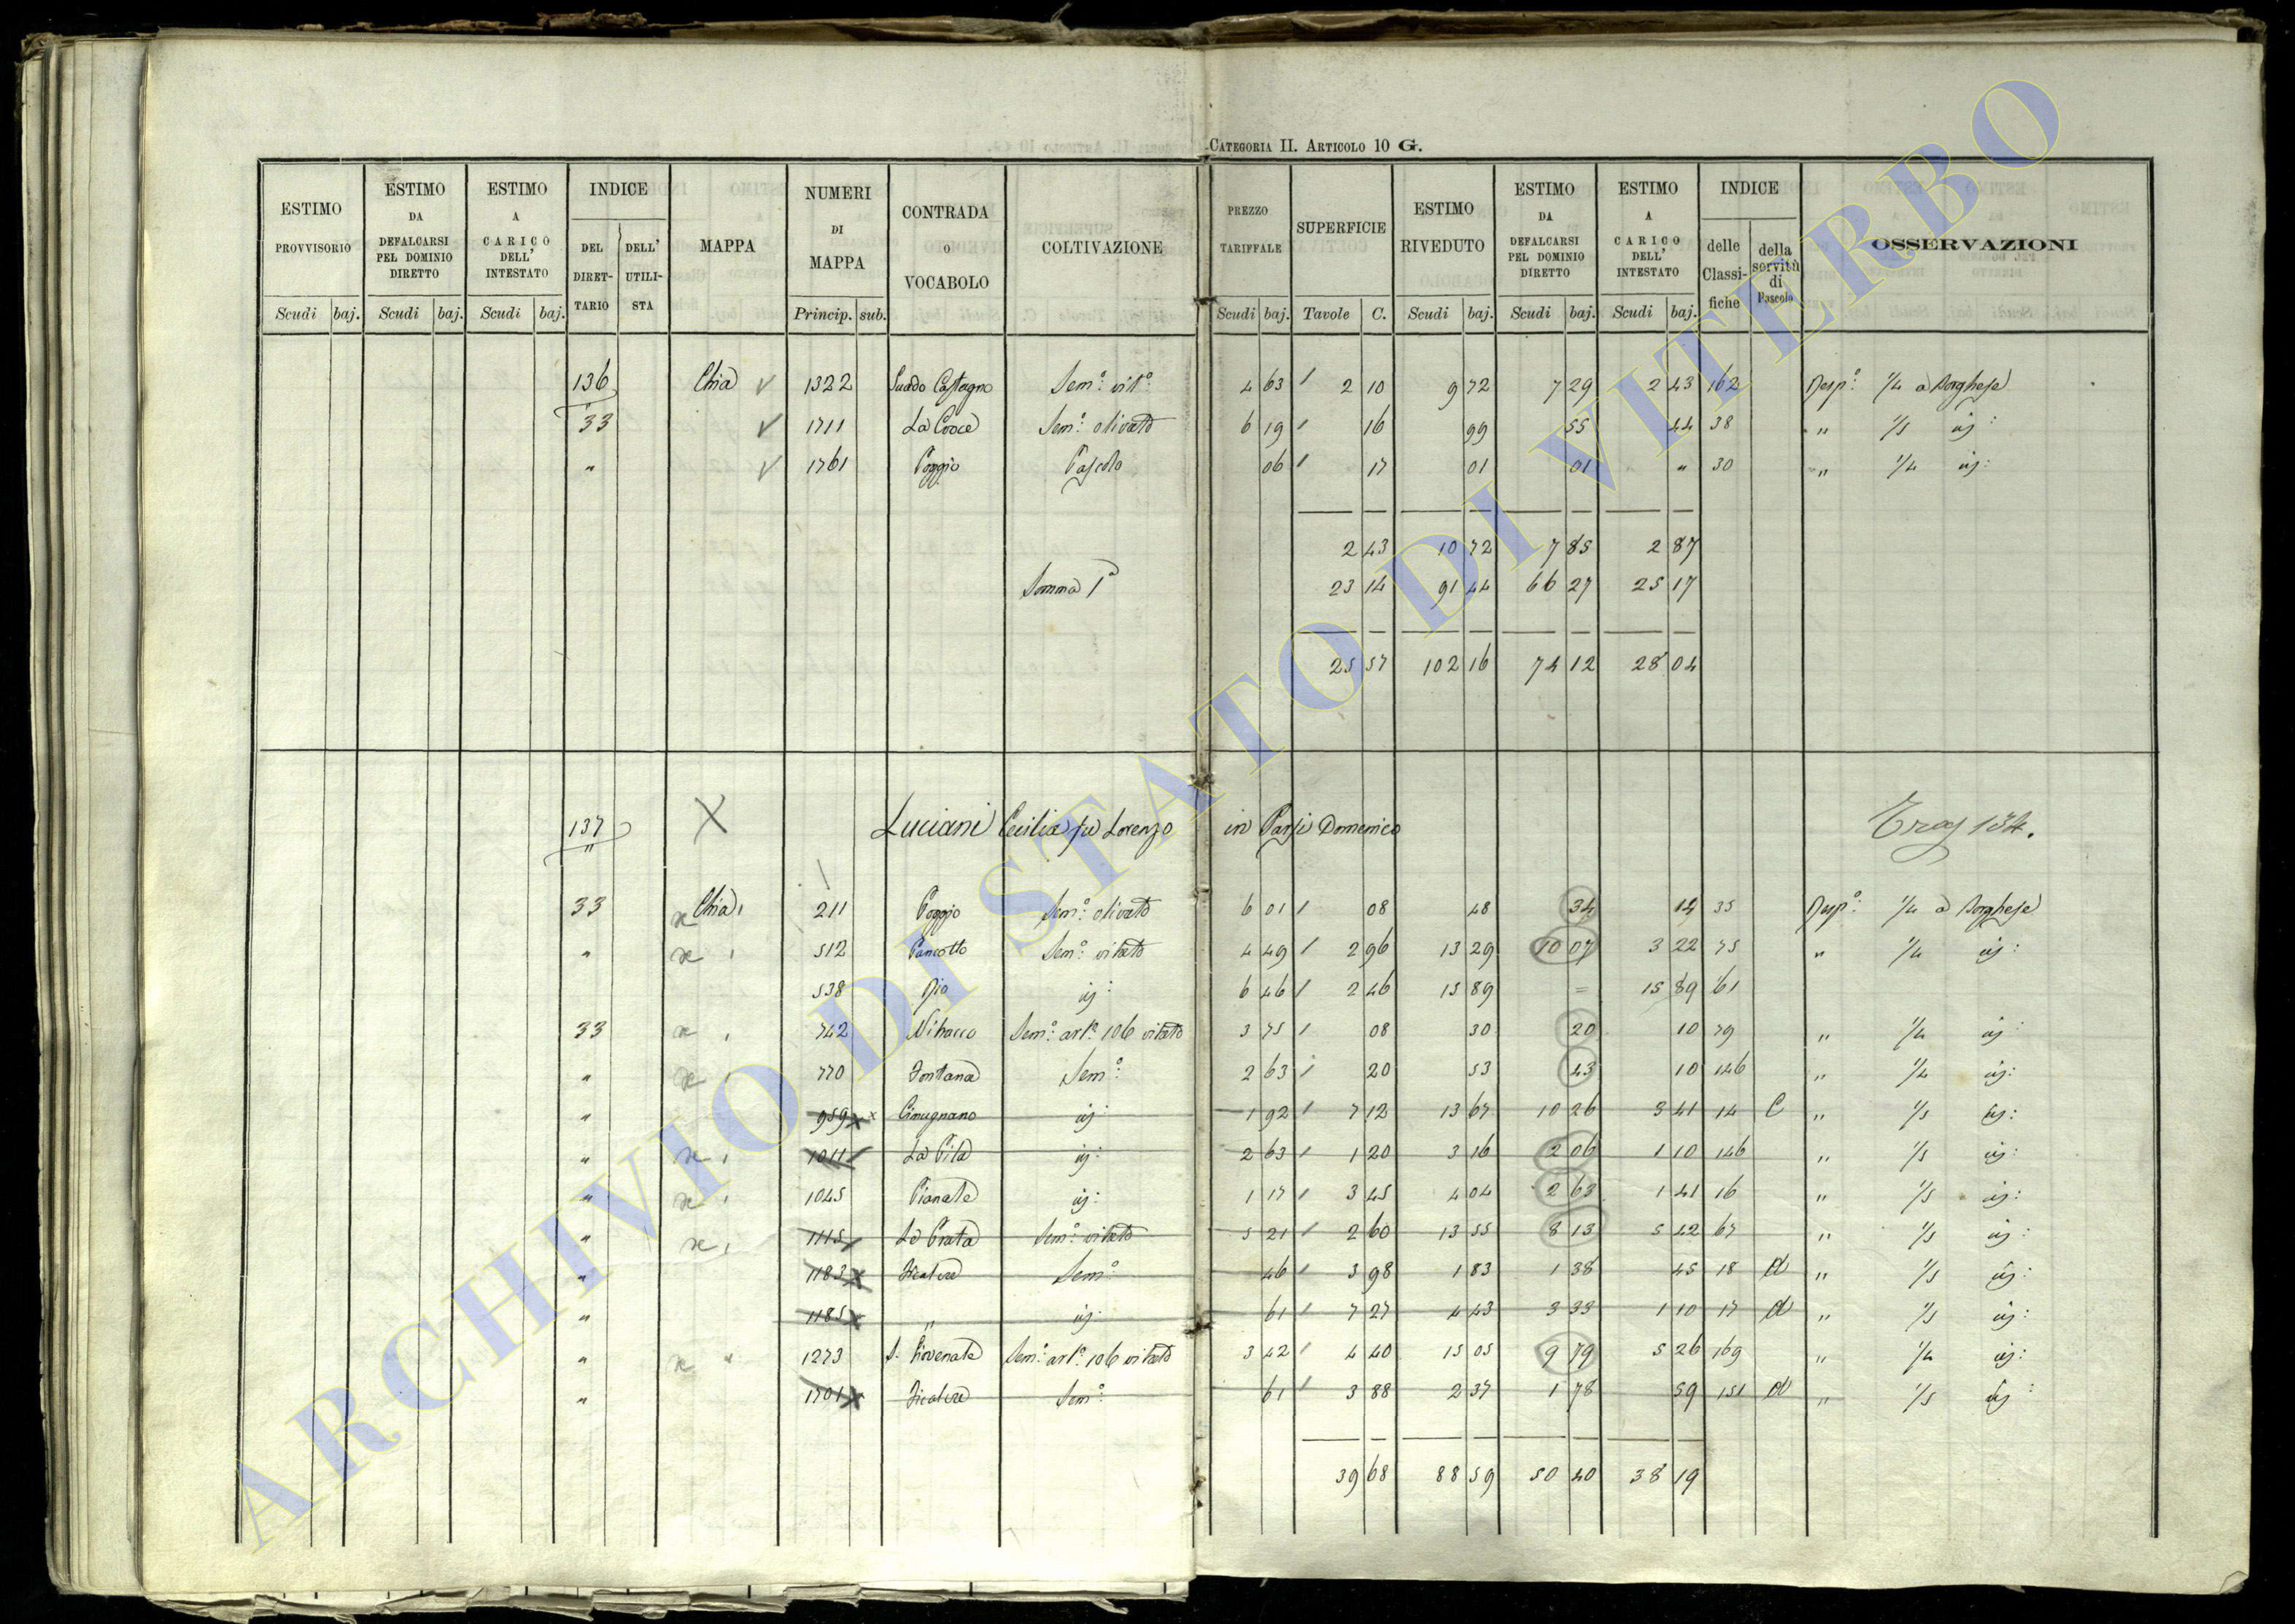 CATEGORIA II. ARTICOLO 10 G.
ESTIMO PROVVISORIO | ESTIMO DA DEFALCARSI PEL DOMINIO DIRETTO | ESTIMO A CARICO DELL' INTESTATO | INDICE DEL DIRET-TARIO | DELL' UTILI-STA | MAPPA | NUMERI DI MAPPA | CONTRADA O VOCABOLO | COLTIVAZIONE | PREZZO TARIFFALE | SUPERFICIE | ESTIMO RIVEDUTO | ESTIMO DA DEFALCARSI PEL DOMINIO DIRETTO | ESTIMO A CARICO DELL' INTESTATO | INDICE delle Classi-fiche | della servitù di Pascolo | OSSERVAZIONI
Scudi baj. Scudi baj. Scudi baj. Princip. sub. Scudi baj. Tavole C. Scudi baj. Scudi baj. Scudi baj.
136 Chia 1322 Castagno Sem.o vit.o 4 63 2 10 9 72 7 29 2 43 162 Resp.o 1/4 a Borghese
33 1711 La Croce Sem.o olivato 6 19 16 99 55 44 38 " 1/5 id:
" 1761 Poggio Pascolo 06 17 01 01 " 30 " 1/4 id:
2 43 10 72 7 85 2 87
Somma 1a 23 14 91 44 66 27 25 17
25 57 102 16 74 12 28 04
137 Luciani Cecilia fu Lorenzo in Parsi Domenico
"
33 Chia 211 Poggio Sem.o olivato 6 01 08 48 34 14 35 Resp.o 1/4 a Borghese
" 512 Pancotto Sem.o vitato 4 49 2 96 13 29 10 07 3 22 75 " 1/4 id:
538 Rio id: 6 46 2 46 15 89 = 15 89 61
33 742 Sem.o art.o 106 vitato 3 75 08 30 20 10 79 " 1/4 id:
" 770 Fontana Sem.o 2 63 20 53 43 10 146 " 1/4 id:
" 959 Cimugnano id: 1 92 7 12 13 67 10 26 3 41 14 C " 1/5 id:
" 1011 La Pila id: 2 63 1 20 3 16 2 06 1 10 146 " 1/5 id:
" 1045 Pianale id: 1 17 3 45 4 04 2 63 1 41 16 " 1/5 id:
" 1115 Le Prata Sem.o vitato 5 21 2 60 13 55 8 13 5 42 67 " 1/5 id:
" 1183 Sem.o 46 3 98 1 83 1 38 45 18 " 1/5 id:
" 1185 " id: 61 7 27 4 43 3 33 1 10 17 " 1/5 id:
" 1273 S. Giovenale Sem.o art.o 106 vitato 3 42 4 40 15 05 9 79 5 26 169 " 1/4 id:
" 1701 Sem.o 61 3 88 2 37 1 78 59 151 " 1/5 id:
39 68 88 59 50 40 38 19
ARCHIVIO DI STATO DI VITERBO